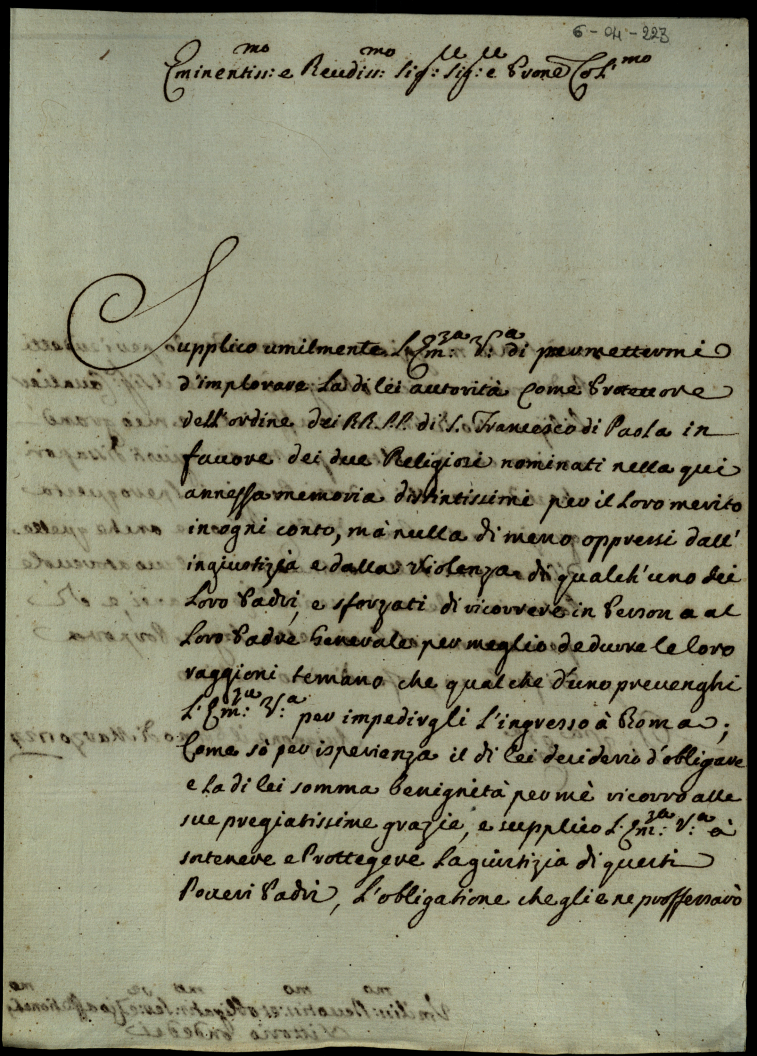 6-04-223
Eminentiss:mo e Reudiss:mo Sig:ll Sig:ll e Prone Col:mo
Supplico umilmente L'Em:za V:a di permettermi
d'implorare la di lei autorità Come Protettore
dell'ordine dei RR.PP. di S. Francesco di Paola in
fauore dei due Religiosi nominati nella qui
annessa memoria distintissimi per il loro merito
in ogni conto, mà nulla di meno oppressi dall'
ingiustizia e dalla Violenza di qualch'uno dei
Loro Padri, e sforzati di ricorrere in Persona al
Loro Padre Generale per meglio dedurre le loro
raggioni temano che qualche d'uno prevenghi
L'Em:za V:a per impedirgli L'ingresso à Roma;
Come sò per isperienza il di lei desiderio d'obligare
e La di lei somma benignità per mè ricorro alle
sue pregiatissime grazie, e supplico L'Em:za V:a à
sostenere e Prottegere La giustizia di questi
Poueri Padri, L'obligatione che gli e ne professarò